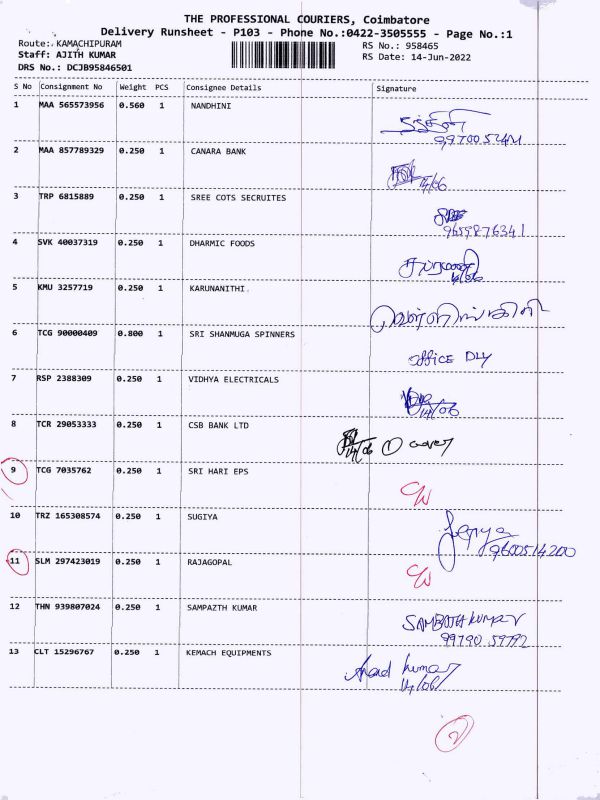 THE PROFESSIONAL COURIERS, Coimbatore
Delivery Runsheet - P103 - Phone No.:0422-3505555 - Page No.:1
Route: KAMACHIPURAM
RS No.: 958465
Staff: AJITH KUMAR
RS Date: 14-Jun-2022
DRS No.: DCJB95846501
S No Consignment No Weight PCS Consignee Details Signature
1 MAA 565573956 0.560 1 NANDHINI
2 MAA 857789329 0.250 1 CANARA BANK
14/06
3 TRP 6815889 0.250 1 SREE COTS SECRUITES
9659876341
4 SVK 40037319 0.250 1 DHARMIC FOODS
5 KMU 3257719 0.250 1 KARUNANITHI.
6 TCG 90000409 0.800 1 SRI SHANMUGA SPINNERS
office DLY
7 RSP 2388309 0.250 1 VIDHYA ELECTRICALS
14/06
8 TCR 29053333 0.250 1 CSB BANK LTD
14/06 1 cover
9 TCG 7035762 0.250 1 SRI HARI EPS
10 TRZ 165308574 0.250 1 SUGIYA
9600514200
11 SLM 297423019 0.250 1 RAJAGOPAL
12 THN 939807024 0.250 1 SAMPAZTH KUMAR
SAMBATH KUMAR
99790 59792
13 CLT 15296767 0.250 1 KEMACH EQUIPMENTS
kumar
14/06/
2